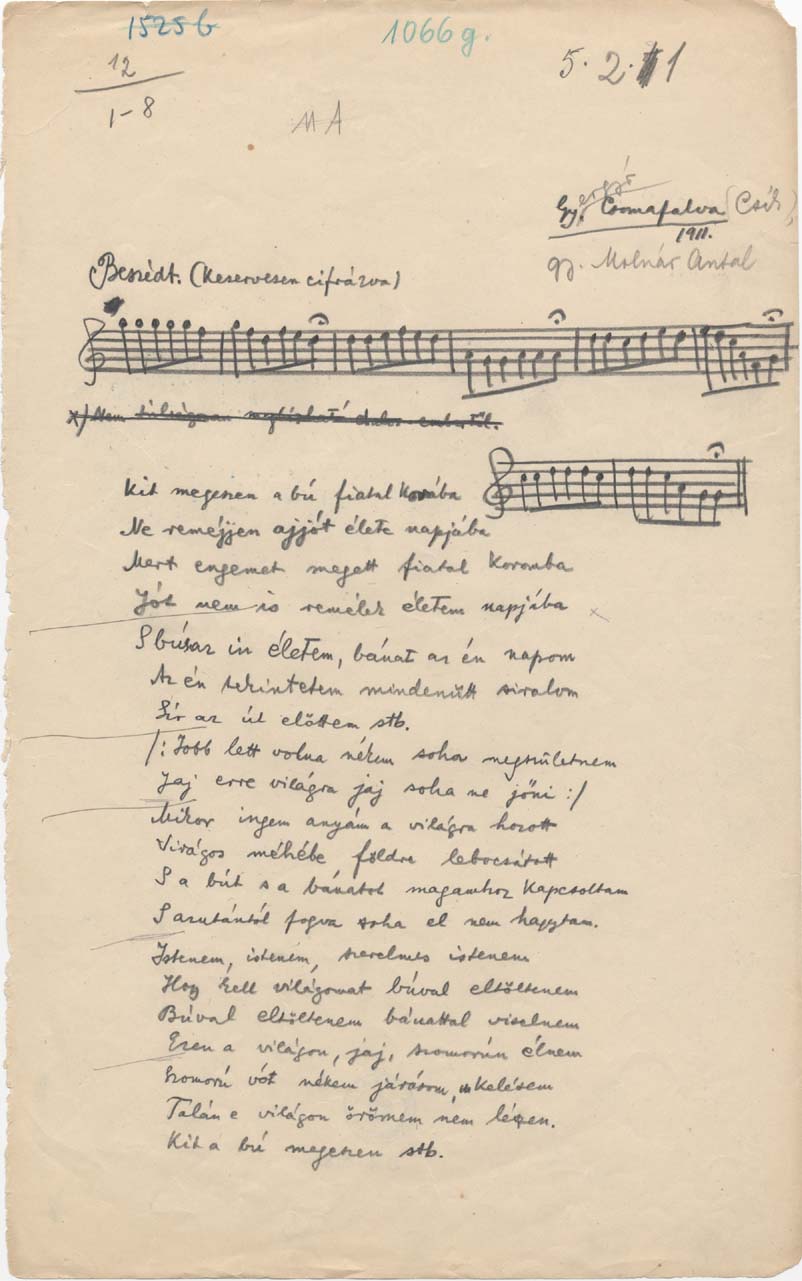 1525 b
1066 g.
12
1-8
5. 2. 1
MA
Gyergyó Csomafalva (Csík)
1911.
gy. Molnár Antal
Beszédt. (Keservesen cifrázva)
x) Nem túlságosan megbízható dalos-embertől.
Kit megeszen a bú fiatal korába
Ne reméjjen ajjót élete napjába
Mert engemet megett fiatal koromba
Jót nem is remélek életem napjába x
S búsaz in életem, bánat az én napom
Az én tekintetem mindenütt siralom
Sír az út előttem stb.
/: Jobb lett volna nékem soha megszületnem
Jaj erre világra jaj soha ne jőni :/
Mikor ingem anyám a világra hozott
Virágos méhébe földre lebocsátott
S a bút s a bánatot magamhoz kapcsoltam
S azutántól fogva soha el nem hagytam.
Istenem, istenem, szerelmes istenem
Hogy kell világomat búval eltöltenem
Búval eltöltenem bánattal viselnem
Ezen a világon, jaj, szomorún élnem
Szomorú vót nékem járásom, kelésem
Talán e világon örömem nem lészen.
Kit a bú megeszen stb.